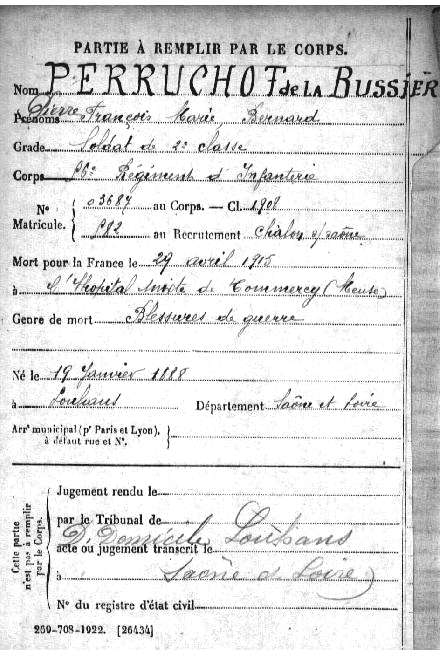 PARTIE À REMPLIR PAR LE CORPS.
Nom PERRUCHOT de la BUSSIÈR
Prénoms Pierre François Marie Bernard
Grade Soldat de 2e classe
Corps Régiment d'Infanterie
N° Matricule. 03687 au Corps. — Cl. 1908
982 au Recrutement Chalon s/saône
Mort pour la France le 29 avril 1915
à l'Hopital mixte de Commercy (Meuse)
Genre de mort Blessures de guerre
Né le 19 Janvier 1888
à Louhans Département Saône et Loire
Arrt municipal (pr Paris et Lyon), à défaut rue et N°.
Cette partie n'est pas à remplir par le Corps.
Jugement rendu le
par le Tribunal de
D. Domicile Louhans
acte ou jugement transcrit le
à Saône et Loire)
N° du registre d'état civil
269-708-1922. [26434]